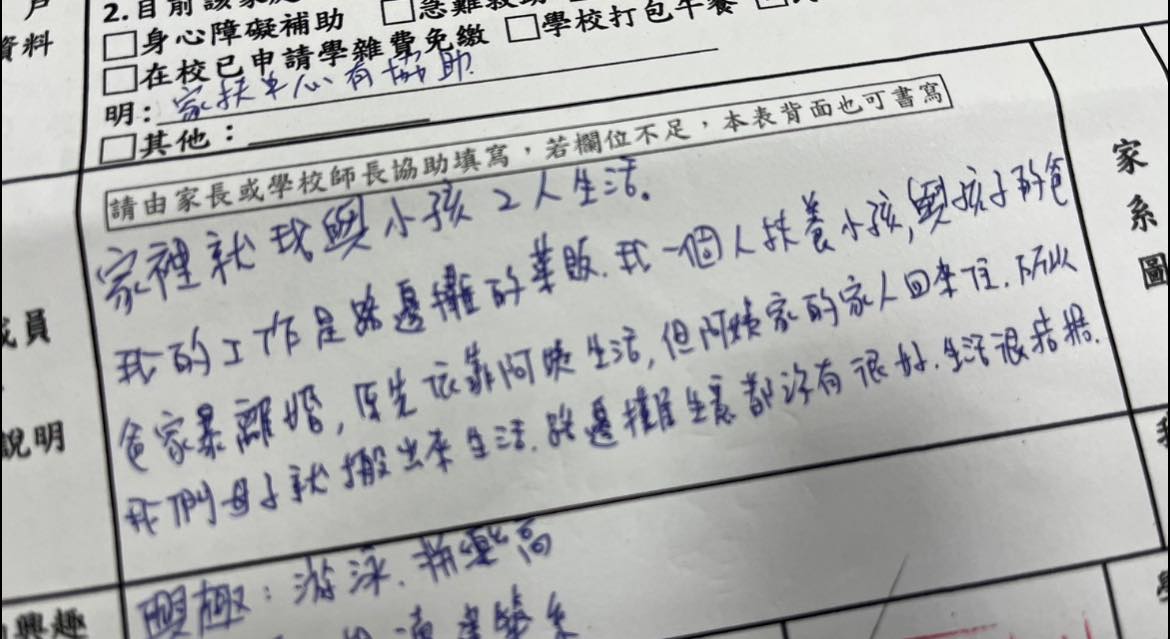 戶
資料
2.目前該家庭
□身心障礙補助 □急難救助
□在校已申請學雜費免繳 □學校打包午餐
明：家扶中心有協助.
□其他：
請由家長或學校師長協助填寫，若欄位不足，本表背面也可書寫
家裡就我與小孩2人生活。
我的工作是路邊攤的菜販.我一個人扶養小孩,與孩子的爸
爸家暴離婚,原先依靠阿姨生活,但阿姨家的家人回來住.所以
我們母子就搬出來生活.路邊攤生意都沒有很好.生活很拮据.
家
系
圖
成員
說明
興趣
興趣：游泳.拼樂高